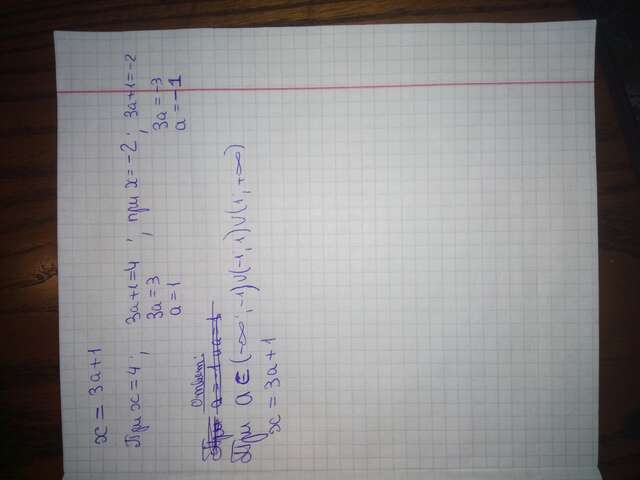 x = 3a+1
При x=4; 3a+1=4; при x=-2; 3a+1=-2
3a=3 3a=-3
a=1 a=-1
Ответ:
При a=-1 и a=1
При a ∈ (-∞; -1) ∪ (-1; 1) ∪ (1; +∞)
x = 3a+1